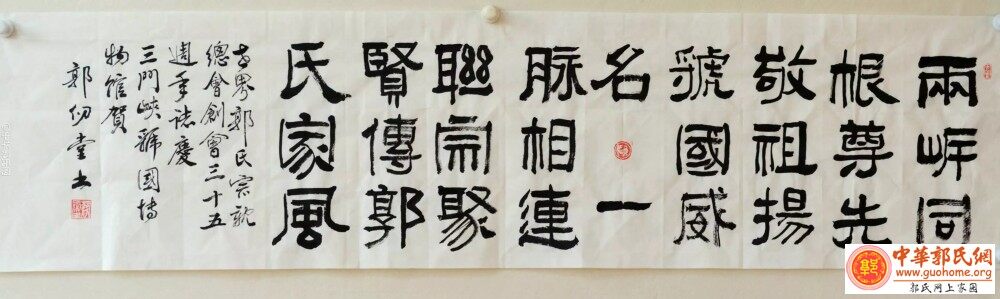 兩岸同
根尊先
敬祖揚
虢國威
名一
脉相連
聯宗聚
賢傳郭
氏家風
世界郭氏宗親
總會創會三十五
週年誌慶
三門峽虢國博
物館賀
郭堂书
中華郭氏網
www.guohome.org
郭氏网上家園